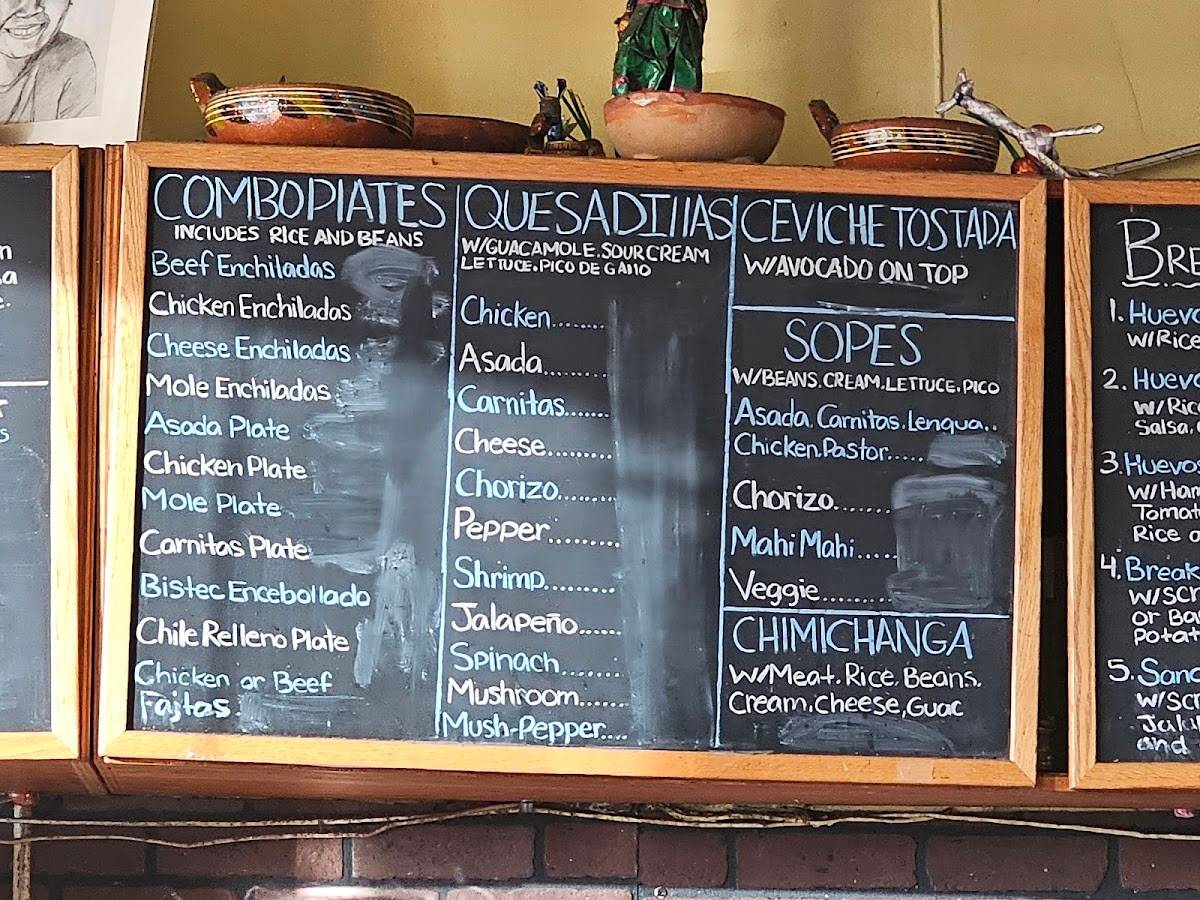 COMBO PLATES
INCLUDES RICE AND BEANS
Beef Enchiladas
Chicken Enchiladas
Cheese Enchiladas
Mole Enchiladas
Asada Plate
Chicken Plate
Mole Plate
Carnitas Plate
Bistec Encebollado
Chile Relleno Plate
Chicken or Beef
Fajitas
QUESADILLAS
W/GUACAMOLE.SOUR CREAM
LETTUCE.PICO DE GALLO
Chicken........
Asada.........
Carnitas......
Cheese.........
Chorizo........
Pepper.........
Shrimp.........
Jalapeño......
Spinach.......
Mushroom......
Mush-Pepper....
CEVICHE TOSTADA
W/AVOCADO ON TOP
SOPES
W/BEANS.CREAM.LETTUCE.PICO
Asada, Carnitas, Lengua..
Chicken.Pastor.....
Chorizo.......
Mahi Mahi.....
Veggie........
CHIMICHANGA
W/Meat, Rice, Beans,
Cream, Cheese, Guac
1. Huevo
W/Rice
2. Huevo
W/Ric
Salsa,
3. Huevos
W/Ham
Tomat
Rice o
4. Break
W/scr
or Bac
Potat
5. Sand
W/scr
Jal
and